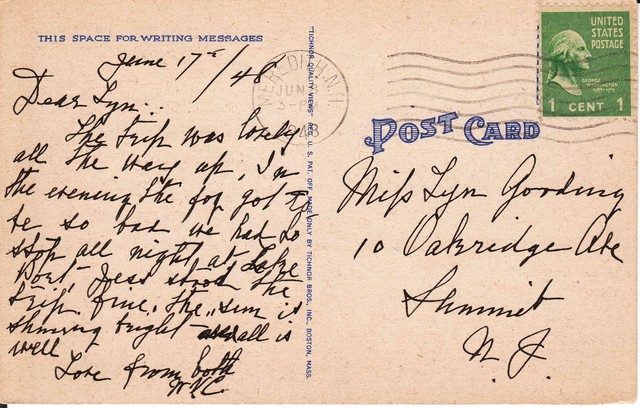 THIS SPACE FOR WRITING MESSAGES
June 17th/48
Dear Lyn..
The trip was lovely
all the way up, In
the evening the fog got to
be so bad we had to
stop all night at Lake
Port, Jess stood the
trip fine. The sun is
shining bright all is
well
Love from both
"TICHNOR QUALITY VIEWS" REG. U. S. PAT. OFF. MADE ONLY BY TICHNOR BROS., INC., BOSTON, MASS.
MEREDITH N.H.
JUN
3-P
UNITED
STATES
POSTAGE
GEORGE
WASHINGTON
1 CENT 1
POST CARD
Miss Lyn Gooding
10 Oakridge Ave
Summit
N. J.